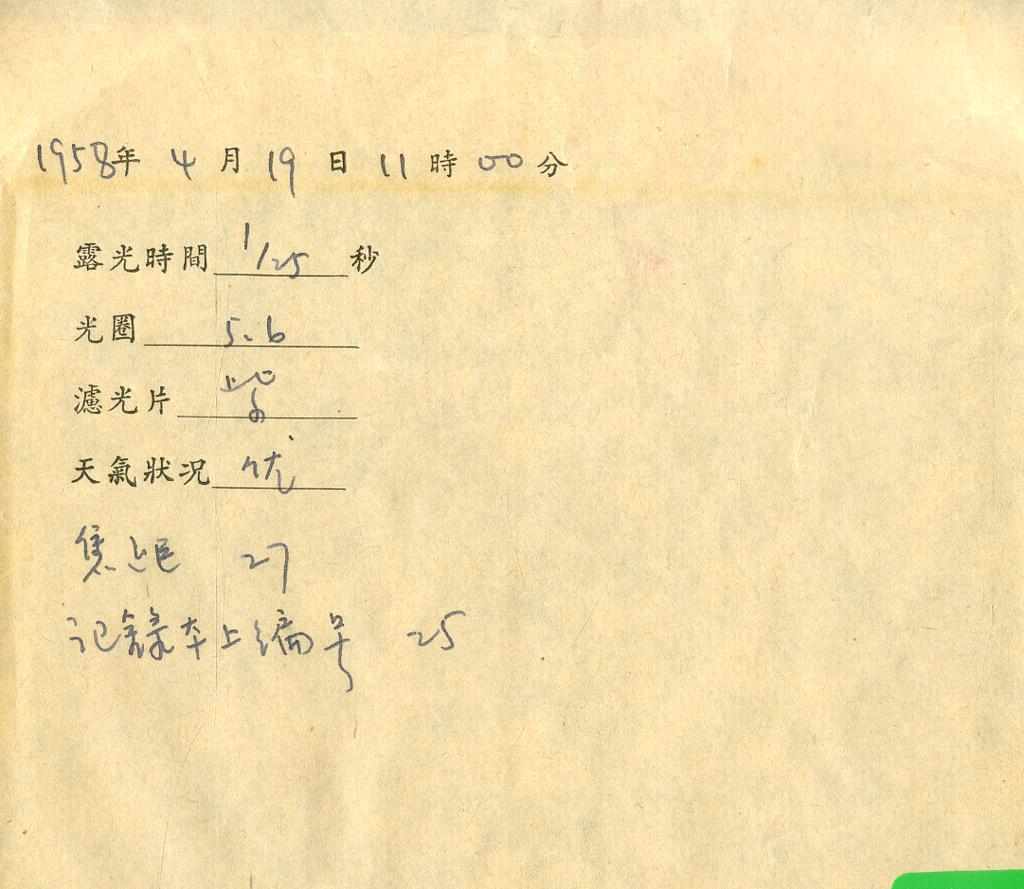 1958年 4 月 19 日 11 時 00 分
露光時間 1/25 秒
光圈 5.6
濾光片
天氣狀况 优
焦距 27
记錄本上编号 25